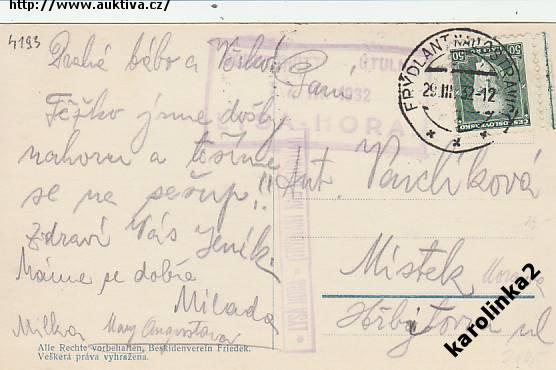 http://www.auktiva.cz/
4193
Drahá bábo a Věrko
Těžko jsme došly
nahoru a těšíme
se na sešup!!
Zdraví Vás Jeník.
Máme se dobře
Milada
Milka Mary Augustova
Alle Rechte vorbehalten, Beskidenverein Friedek.
Veškerá práva vyhražena.
Paní
Ant. Pavlíková
Místek
Hřbitovní ul
ÚTULNA
1932
LYSÁ-HORA
FRÝDLANT NAD OSTRAVICÍ
29.III.32-12
50
ČESKOSLOVENSKO
karolinka2